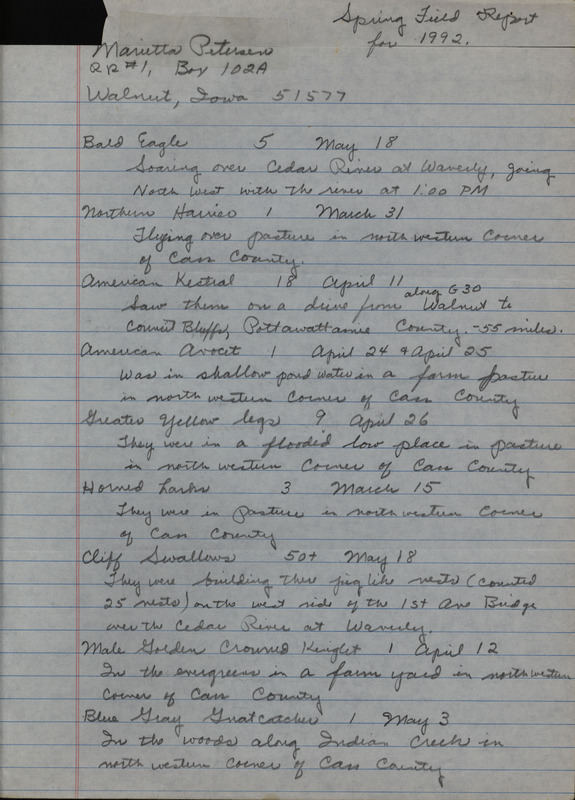 Spring Field Report
for 1992.
Marietta Petersen
RR #1, Box 102A
Walnut, Iowa 51577
Bald Eagle 5 May 18
Soaring over Cedar River at Waverly, going
North West with the river at 1:00 PM
Northern Harrier 1 March 31
Flying over pasture in north western corner
of Cass County.
American Kestral 18 April 11
Saw them on a drive from along G30 Walnut to
Council Bluffs, Pottawattamie County. - 55 miles.
American Avocet 1 April 24 & April 25
Was in shallow pond water in a farm pasture
in north western corner of Cass County
Greater Yellow legs 9 April 26
They were in a flooded low place in pasture
in north western corner of Cass County
Horned Larks 3 March 15
They were in pasture in north western corner
of Cass County
Cliff Swallows 50+ May 18
They were building there jug like nests (counted
25 nests) on the west side of the 1st Ave Bridge
over the Cedar River at Waverly.
Male Golden Crowned Kinglet 1 April 12
In the evergreens in a farm yard in north western
corner of Cass County
Blue Gray Gnatcatcher 1 May 3
In the woods along Indian Creek in
north western corner of Cass County